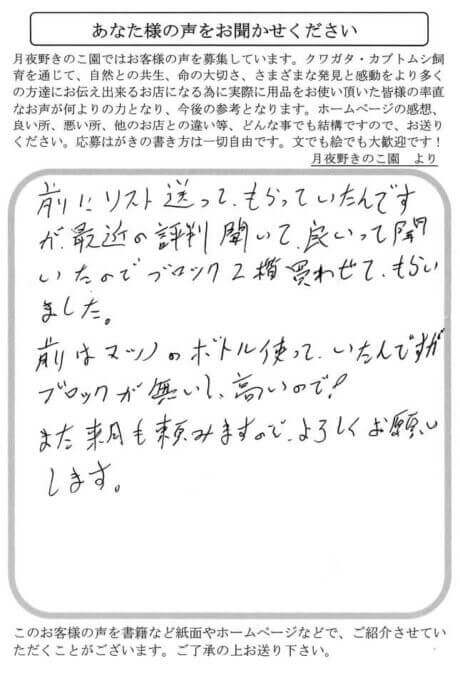 あなた様の声をお聞かせください
月夜野きのこ園ではお客様の声を募集しています。クワガタ・カブトムシ飼
育を通じて、自然との共生、命の大切さ、さまざまな発見と感動をより多く
の方達にお伝え出来るお店になる為に実際に用品をお使い頂いた皆様の率直
なお声が何よりの力となり、今後の参考となります。ホームページの感想、
良い所、悪い所、他のお店との違い等、どんな事でも結構ですので、お送り
ください。応募はがきの書き方は一切自由です。文でも絵でも大歓迎です！
月夜野きのこ園 より
前にリスト送って、もらっていたんです
が、最近の評判聞いて、良いって聞
いたのでブロック2箱買わせて、もらい
ました。
前はマツノのボトル使って、いたんですが
ブロックが無いし、高いので!
また来月も頼みますので、よろしくお願い
します。
このお客様の声を書籍など紙面やホームページなどで、ご紹介させてい
ただくことがございます。ご了承の上お送り下さい。